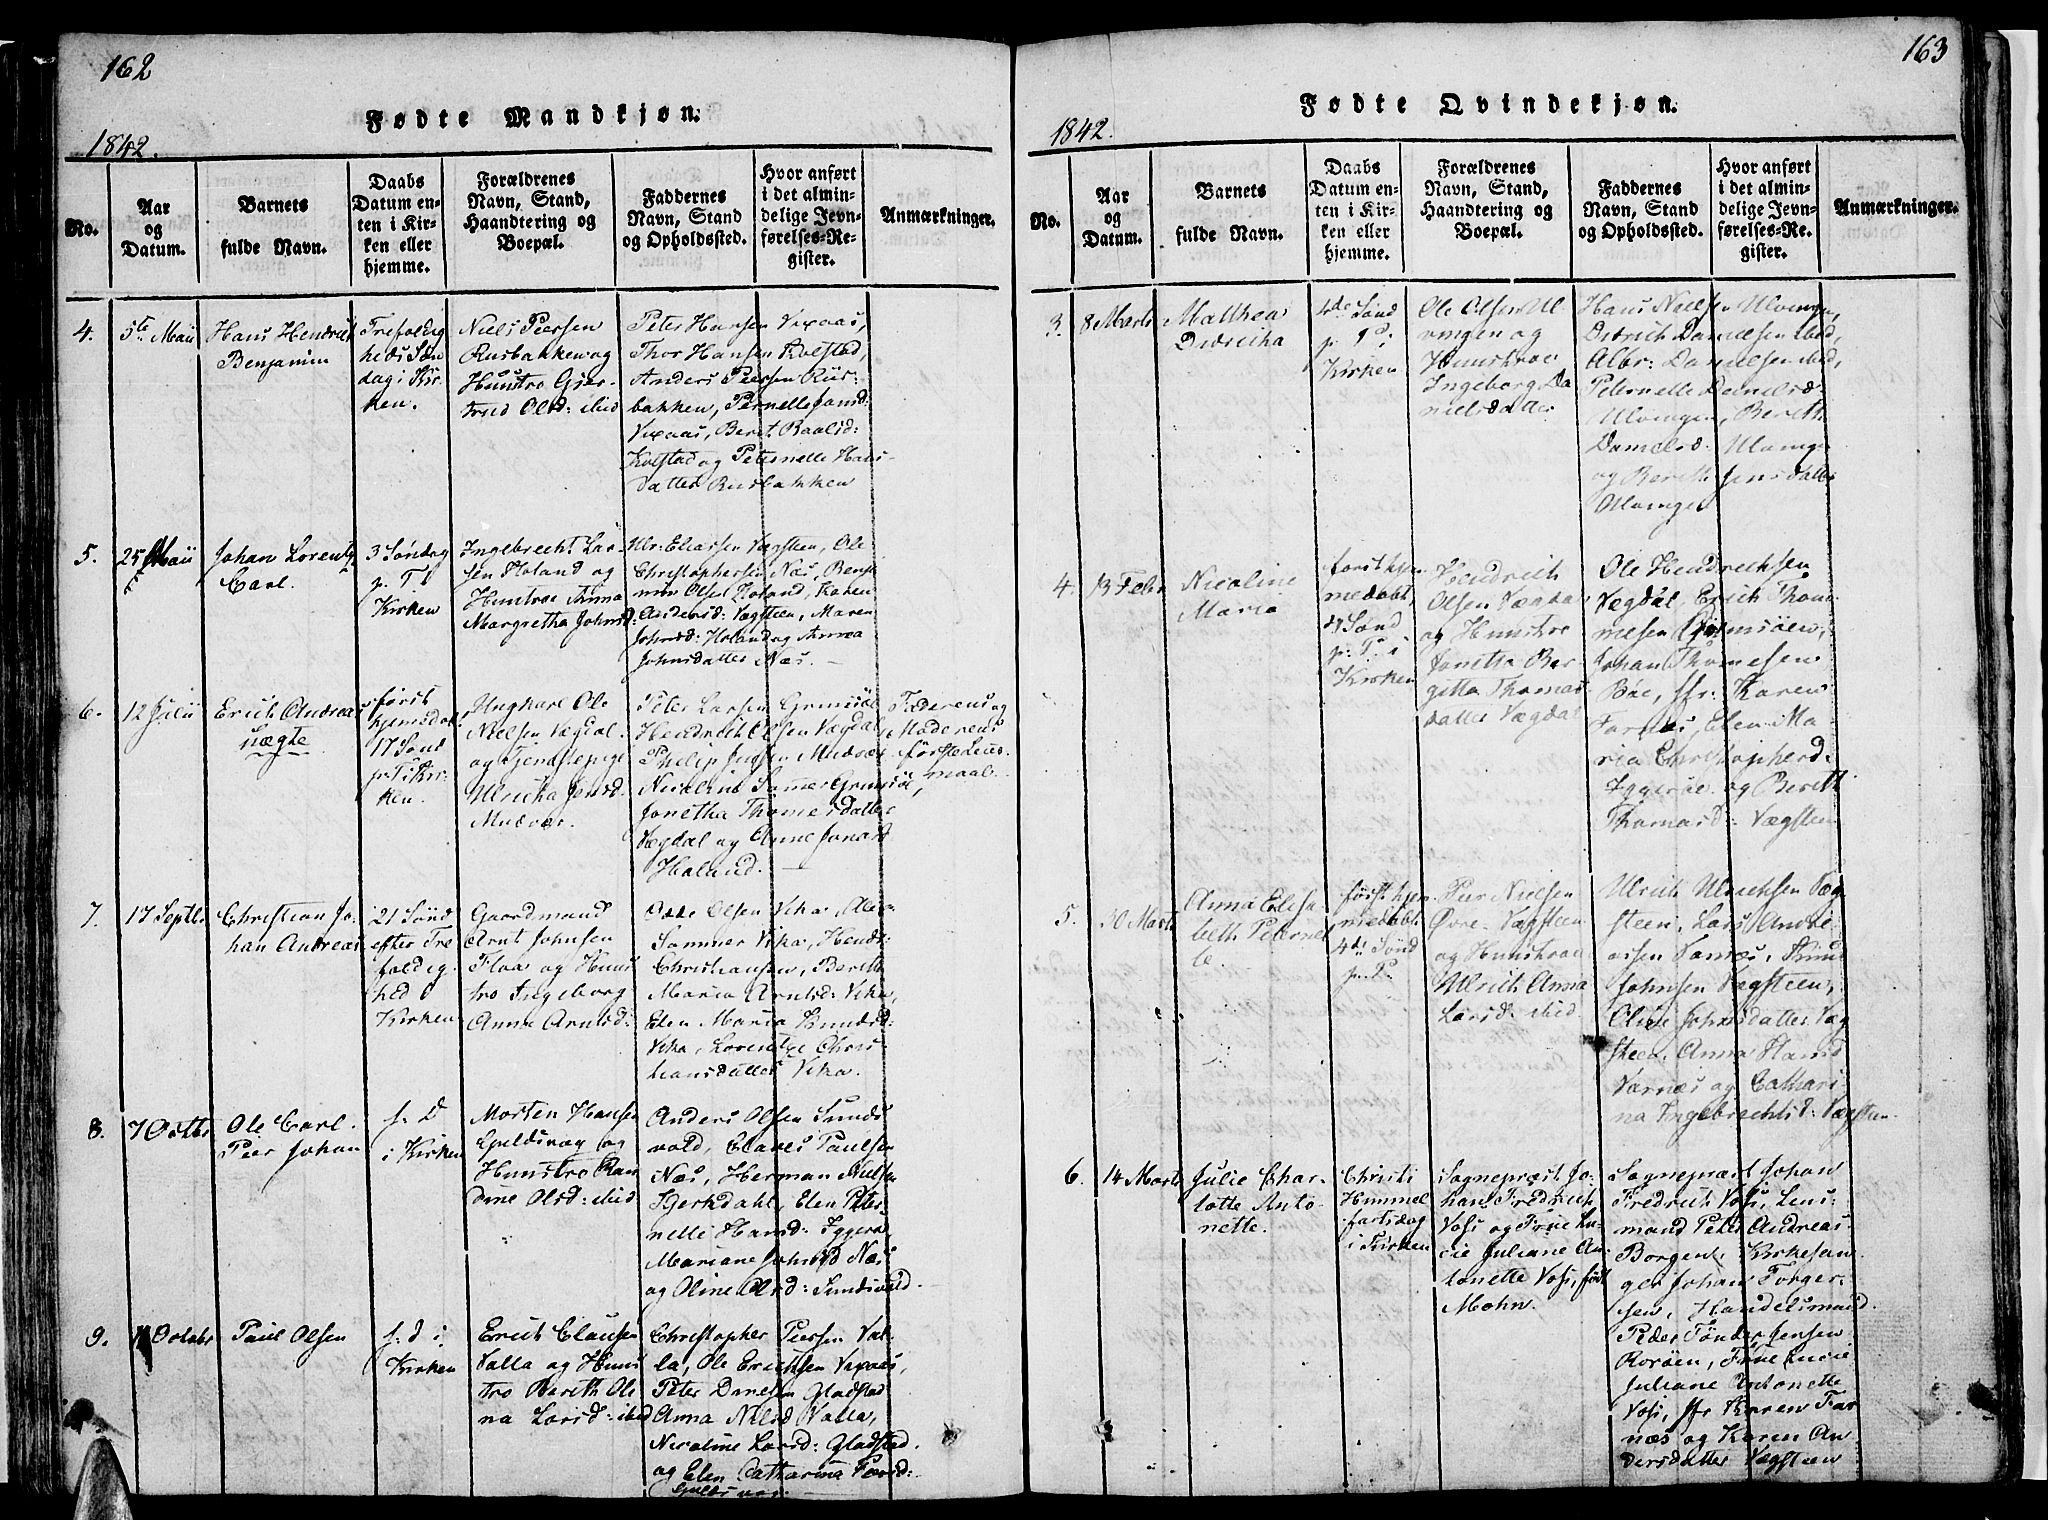 162
Fødte Mandkjøn.
1842.
No.
Aar
og
Datum.
Barnets
fulde Navn.
Daabs
Datum en-
ten i Kir-
ken eller
hjemme.
Forældrenes
Navn, Stand,
Haandtering og
Boepæl.
Faddernes
Navn, Stand
og Opholdssted.
Hvor anført
i det almin-
delige Jevn-
førelses-Re-
gister.
Anmærkninger.
4.
5te Maii
Hans Hendrich
Benjamin
Trefoldig
heds Søn
dag i Kir-
ken.
Niels Peersen
Rusbakken og
Hustro Gjer-
trud Olsd: ibid
Peter Hansen Vixaas,
Thor Hansen Kolstad,
Anders Peersen Rus:
bakken, Pernelle Hansd:
Vixaas, Beret Paalsd:
Kolstad og Peternelle Hans-
datter Rusbakken
5.
25 Maii
Johan Lorentz
Carl.
3 Søndag
p. T. i
Kirken
Ingebrecht Lar-
sen Holand og
Hustroe Anna
Margretha Johnsd:
Ulr: Eliassen Vægsteen, Ole
Christophersen Næs, Benja
min Olsen Holand, Karen
Andersd: Vægsteen, Maren
Johnsd: Holand og Anna
Johnsdatter Næs. —
6.
12 Julii
Erich Andreas
uægte
først
hjemedøbt
17 Sønd
p: T i Kir-
ken.
Ungkarl Ole
Nielsen Vægdal
og Tjenstepige
Ulricha Jensd.
Mudvær.
Peter Larsen Grimsøe
Hendrich Olsen Vægdal
Philip Jensen Mudvær
Nicoline Sommer Grimsøe,
Jonetha Thomesdatter
Vægdal og Anne Jonasd
Holand. —
Faderens og
Moderens
første Leier
maal.
7.
17 Septbr
Christian Jo-
han Andreas
21 Sønd
efter Tre
foldig-
hed i
Kirken
Gaardmand
Arnt Johnsen
Floa og Hus
tro Ingeborg
Anna Arntsd:
Olsen Vika,
Sommer Vika, Hendr:
Christiansen, Berette
Maria Arntsd: Vika,
Elen Maria Knudsd:
Vika, Lorentze Chris-
tiansdatter Vika.
8.
7 Octbr
Ole Carl
Peer Johan
f: D
i Kirken
Morten Hansen
Guldsvog og
Hustro Ran
dine Olsd: ibid
Anders Olsen Sunds
vold, Claves Paulsen
Næs, Herman Nielsen
Bjerkdahl, Elen Peter-
nelle Hansd: Iggerø,
Mariane Johnsd Næs
og Oline Olsd: Sundsvold
9.
Octobr
Paul Olsen
f: d i
Kirken
Erich Clausen
Valla og Hus
tro Berith Ole
na Larsd: ibid
Christopher Peersen Val-
la, Ole Erichsen Vixaas,
Peter Danielsen Gladstad
Anna Nilsd Valla,
Nicoline Larsd: Gladsted
og Elen Catharina Pearsd:
Guldsvog.
163
Fødte Qvindekjøn.
1842.
No.
Aar
og
Datum.
Barnets
fulde Navn.
Daabs
Datum en-
ten i Kir-
ken eller
hjemme.
Forældrenes
Navn, Stand,
Haandtering og
Boepæl.
Faddernes
Navn, Stand
og Opholdssted.
Hvor anført
i det almin-
delige Jevn-
førelses-Re-
gister.
Anmærkninger.
3.
8 Marts
Mathea
Didricha
4de Sønd
p. P. i
Kirken
Ole Olsen Ul
vingen og
Hustroe
Ingeborg Da
nielsdatter
Hans Nielsen Ulvingen,
Didrich Danielsen ibid,
Albr: Danielsen ibid,
Peternelle Danielsd
Ulvingen, Berith
Danielsd: Ulvingen
og Berith Jensdatter
Ulvingen
4.
13 Febr
Nicoline
Maria
først hjem
medøbt,
Sønd
p: T. i
Kirken
Hendrich
Olsen Vægdal
og Hustroe
Jonetta Ber-
gitta Thomas
datter Vægdal
Ole Hendrichsen
Vægdal, Erich Thom
mesen Grimsøen,
Johan Thomesen
Bøe, Jfr: Karen
Farnes, Elen Ma-
ria Christophersd:
Iggerøe og Berett
Thomasd: Vægsteen
5.
30 Marts
Anna Elisa
beth Peternel
le.
først hjem
medøbt
4de Sønd
p. P.
Peer Nielsen
Øvre-Vægsteen
og Hustroe
Ulrich Anna
Larsd: ibid.
Ulrich Ulrichsen Væg-
steen, Lars Andre
assen Varnæs, Knud
Johnsen Vægsteen,
Oline Johnsdatter Væg
steen, Anna Hansd
Varnæs og Cathari
na Ingebrechtsd: Vægsten.
6.
14 Marts
Julie Char-
lotte Anto-
nette.
Christi
Himmel
fartsdag
i Kirken
Sognepræst Jo-
han Fredrich
Vosz og Frue Lu-
cie Juliane An-
tonette Vosz, født
Mohn.
Sognepræst Johan
Fredrich Vosz, Lens-
mand Peter Andreas
Borgen, Kirkesan-
ger Johan Torger-
sen, Handelsmand
Peder Tønder Jensen
Rorøen, Frue Lucie
Juliane Antonette
Vosz, Jfr Karen Far
næs og Karen An
dersdatter Vægsteen